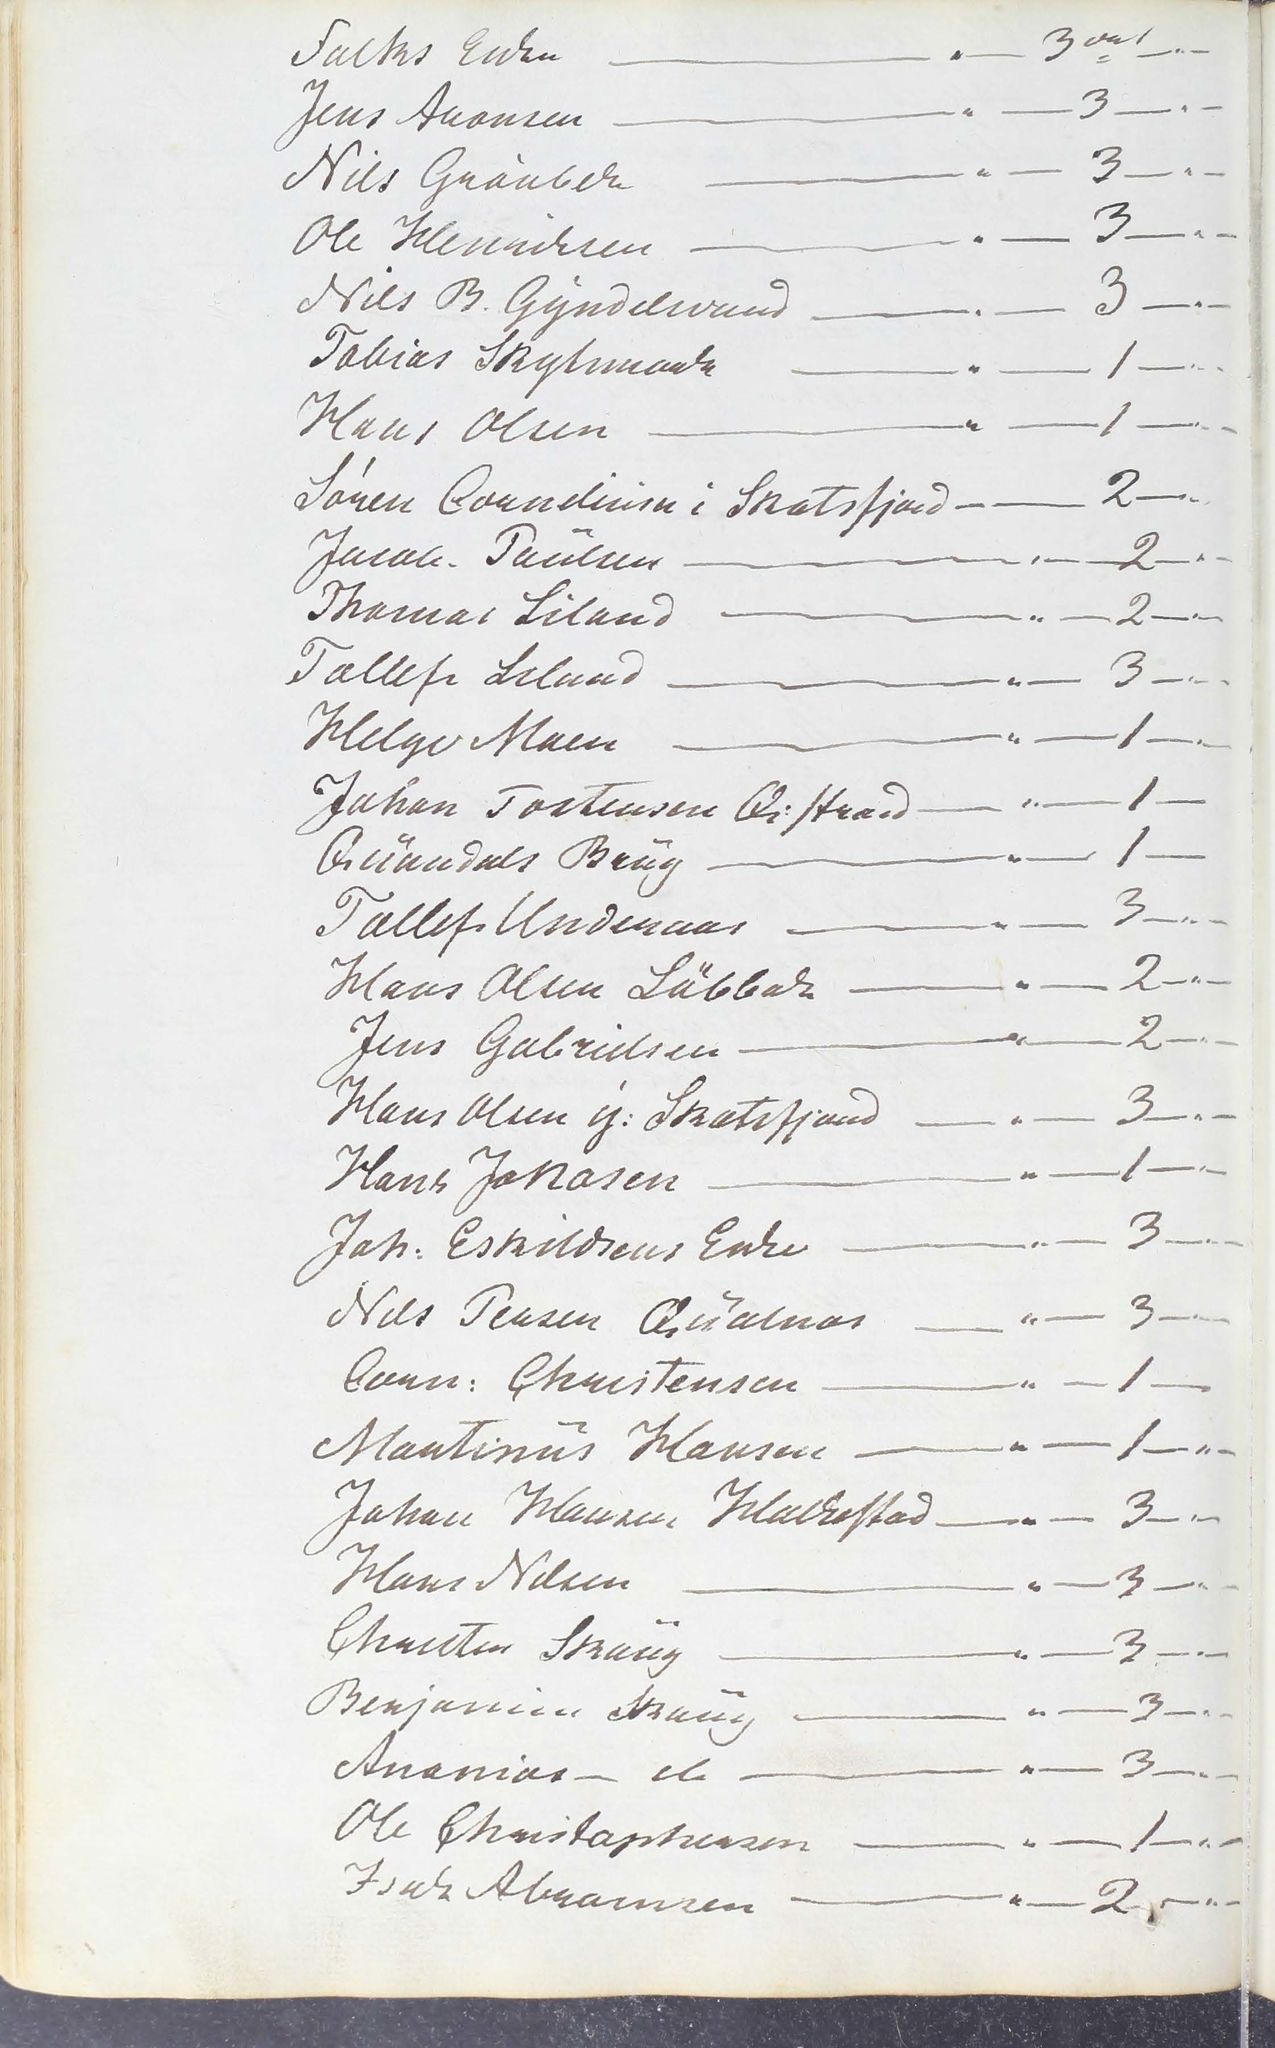 Falks Enke — " — 3 ort — " —
Jens Aronsen — " — 3 — " —
Nils Gröubek — " — 3 — " —
Ole Henriksen — " — 3 — " —
Nils B. Gyndelvand — " — 3 — " —
Tobias — " — 1 — " —
Hans Olsen — " — 1 — " —
Sören Corneliusen i Skatsfjord — 2 — "
Jacob Paülsen — " — 2 — " —
Thomas Liland — " — 2 — " —
Tollefs Liland — " — 3 — " —
Helge Moen — " — 1 — " —
Johan Tostensen Qvistrand — " — 1 —
Qüandals Brüg — " — 1 —
Tollef Underaas — " — 3 — " —
Hans Olsen Lübbek — " — 2 — " —
Jens Gabrielsen — " — 2 — " —
Hans Olsen ij: Skatsfjord — " — 3 — " —
Hans Jokasen — " — 1 — " —
Joh: Eskildsens Enke — " — 3 — " —
Nils Pensen Qüalnas — " — 3 — " —
Corn: Christensen — " — 1 —
Martinüs Hansen — " — 1 — " —
Johan Hansen Halkestad — " — 3 — " —
Hans Nilsen — " — 3 — " —
Christen Skaüg — " — 3 — " —
Benjamin Skaüg — " — 3 — " —
Ananias — do — " — 3 — " —
Ole Christophersen — " — 1 — " —
Isak Abramsen — " — 2 — " —